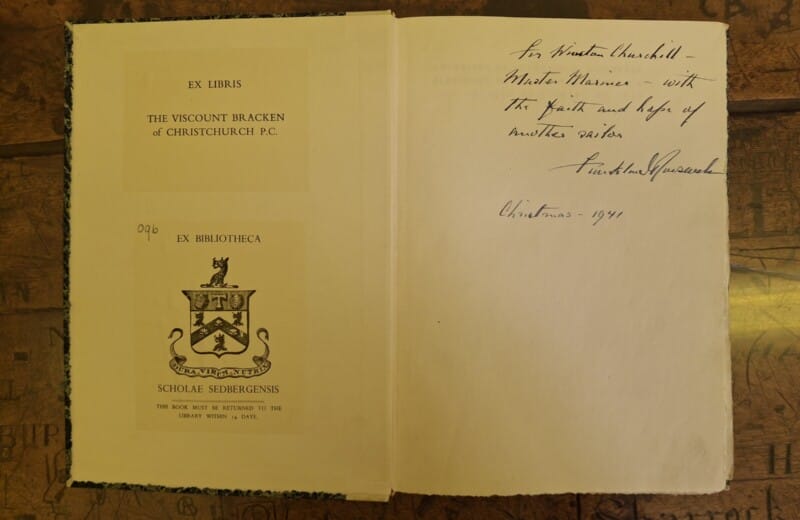 EX LIBRIS
THE VISCOUNT BRACKEN
of CHRISTCHURCH P.C.
096
EX BIBLIOTHECA
T
DURA VIRUM NUTRIX
SCHOLAE SEDBERGENSIS
THIS BOOK MUST BE RETURNED TO THE
LIBRARY WITHIN 14 DAYS.
For Winston Churchill –
Master Mariner – with
the faith and hope of
another sailor
Franklin D Roosevelt
Christmas – 1941